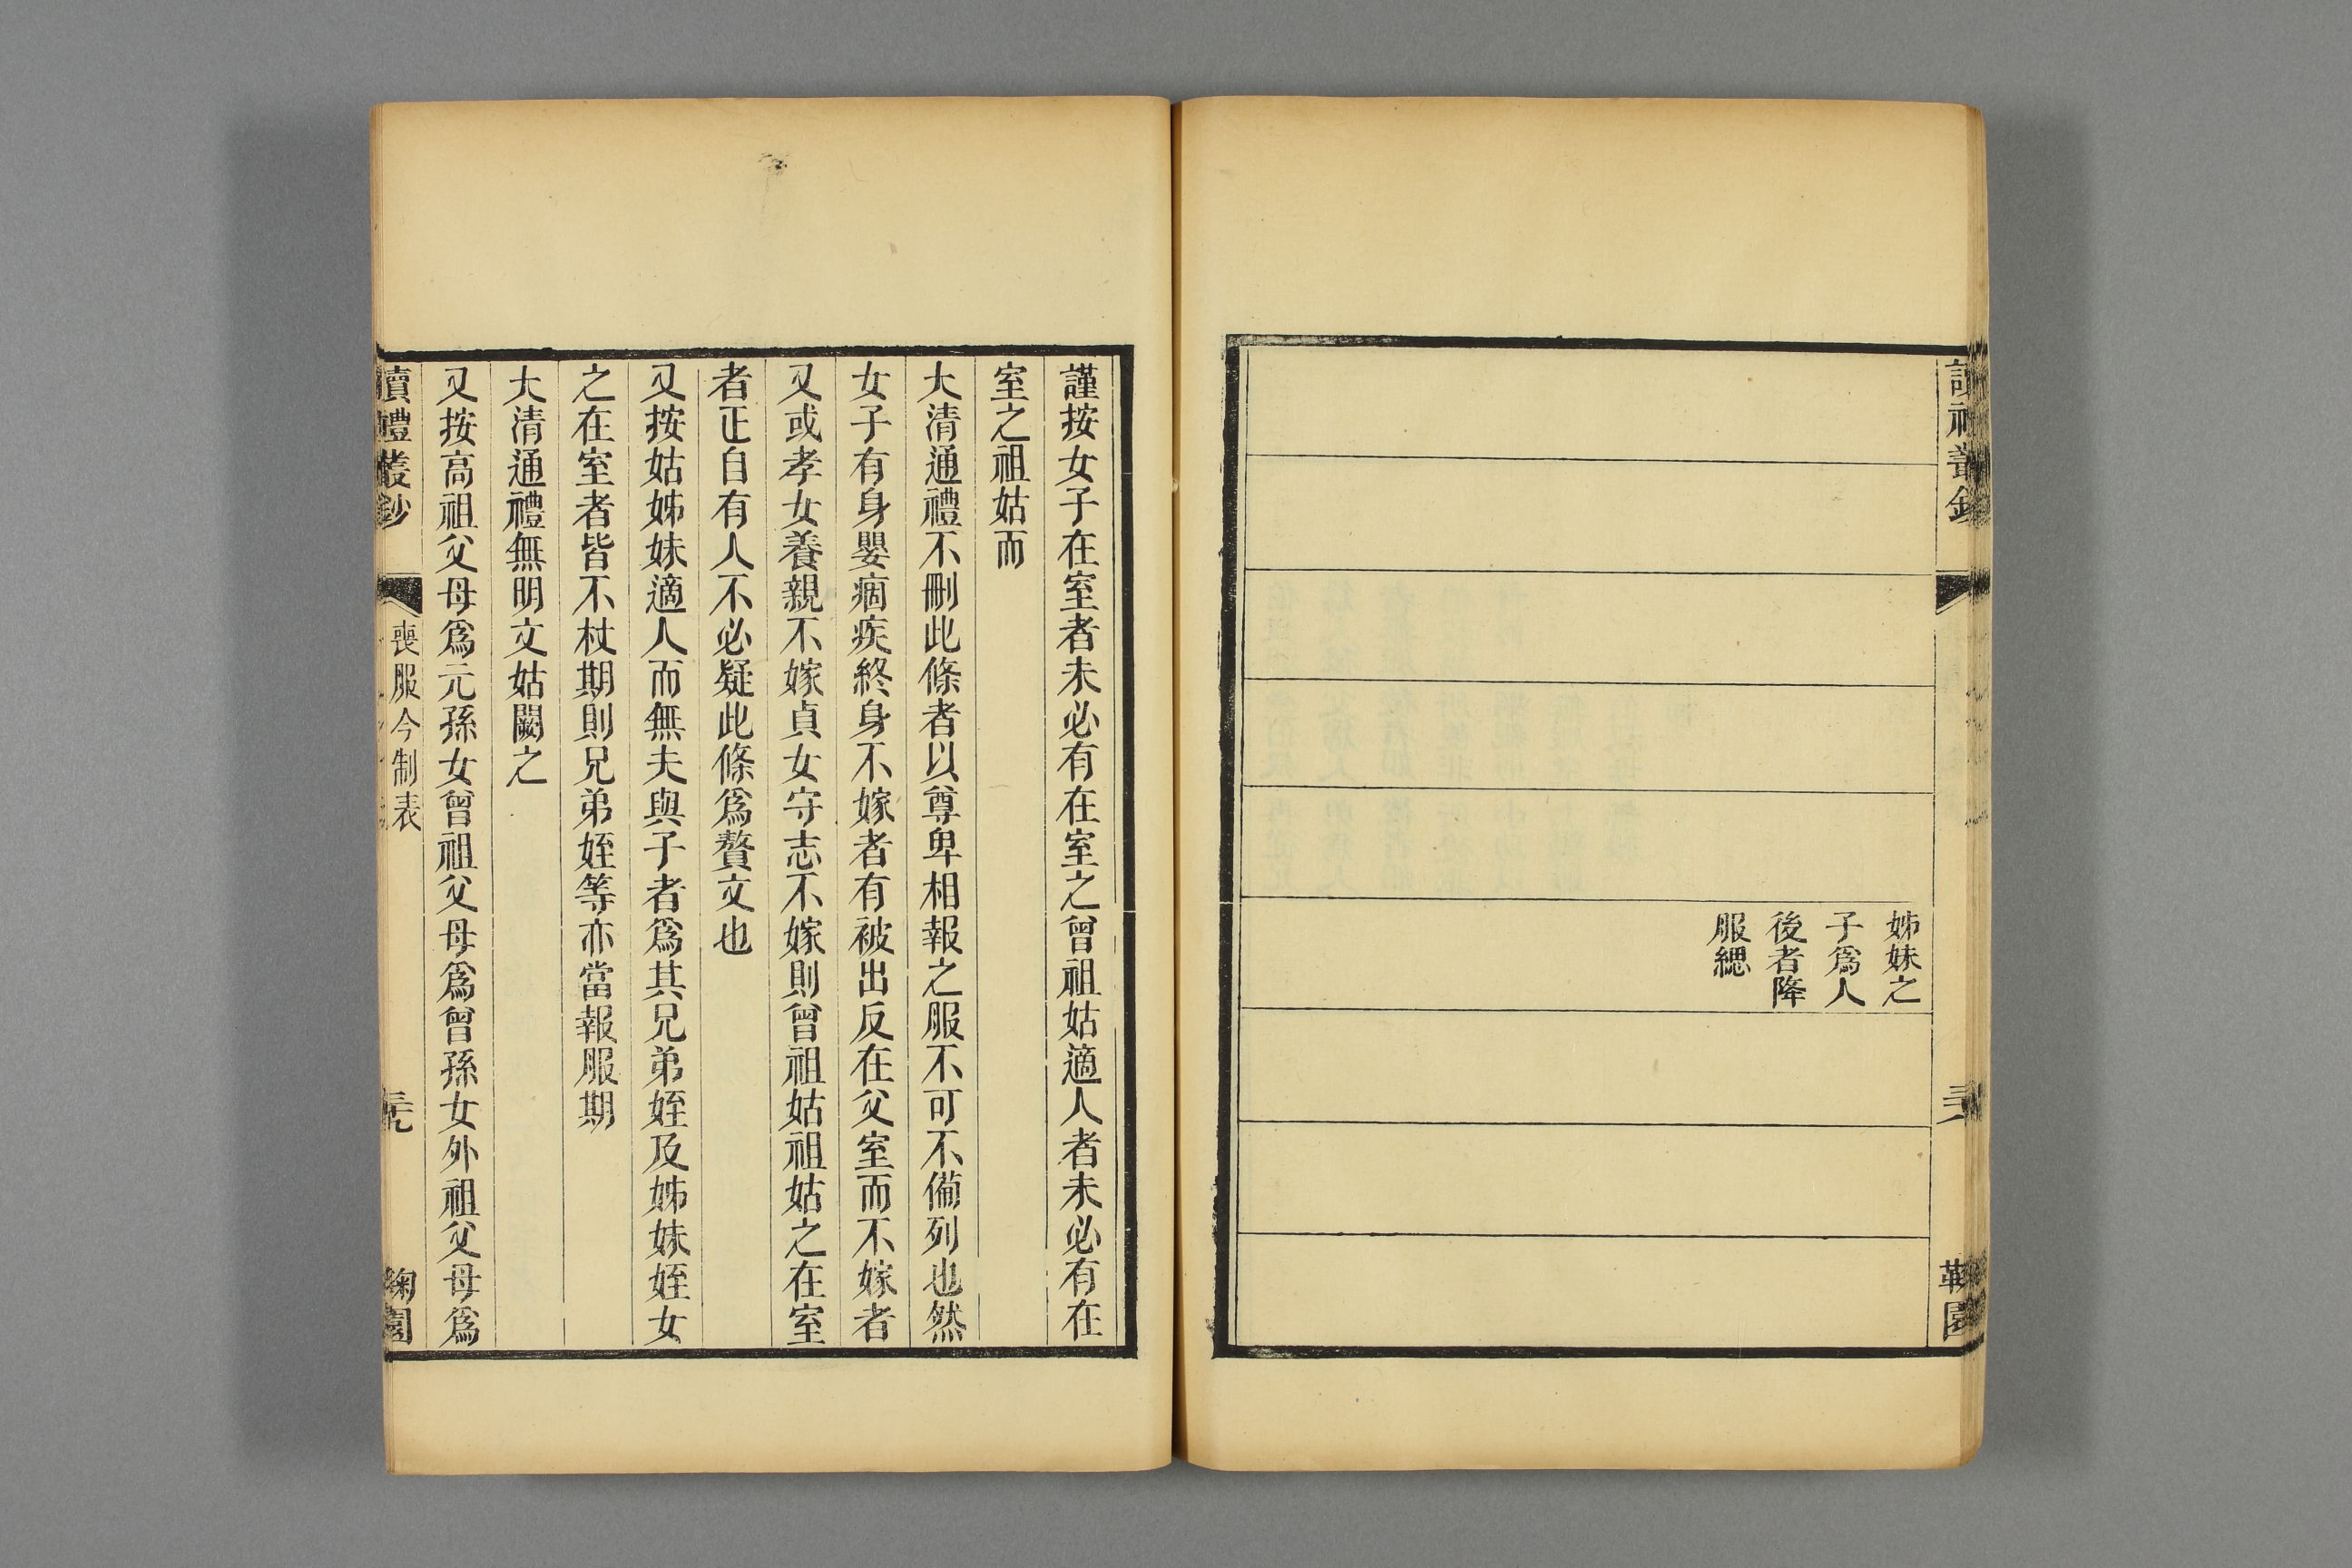 讀禮叢鈔
鞠園
姊妹之
子爲人
後者降
服緦
謹按女子在室者未必有在室之曾祖姑適人者未必有在
室之祖姑而
大清通禮不刪此條者以尊卑相報之服不可不備列也然
女子有身嬰痼疾終身不嫁者有被出反在父室而不嫁者
又或孝女養親不嫁貞女守志不嫁則曾祖姑祖姑之在室
者正自有人不必疑此條爲贅文也
又按姑姊妹適人而無夫與子者爲其兄弟姪及姊妹姪女
之在室者皆不杖期則兄弟姪等亦當報服期
大清通禮無明文姑闕之
又按高祖父母爲元孫女曾祖父母爲曾孫女外祖父母爲
讀禮叢鈔
喪服今制表
三九
鞠園